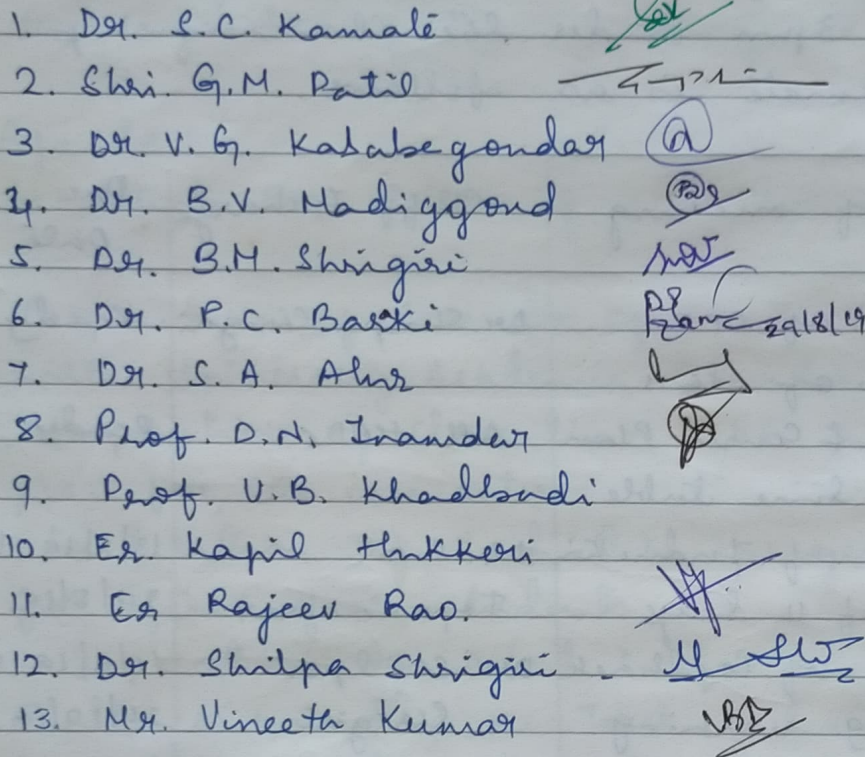 1. Dr. S.C. Kamate
2. Shri. G.M. Patil
3. Dr. V. G. Kasabegoudar
4. Dr. B.V. Madiggond
5. Dr. B.M. Shrigiri
6. Dr. P.C. Barki 29/8/19
7. Dr. S. A. Alur
8. Prof. D.N. Inamdar
9. Prof. V.B. Khadbadi
10. Er. Kapil Hukkeri
11. Er Rajeev Rao.
12. Dr. Shilpa Shrigiri
13. Mr. Vineeth Kumar